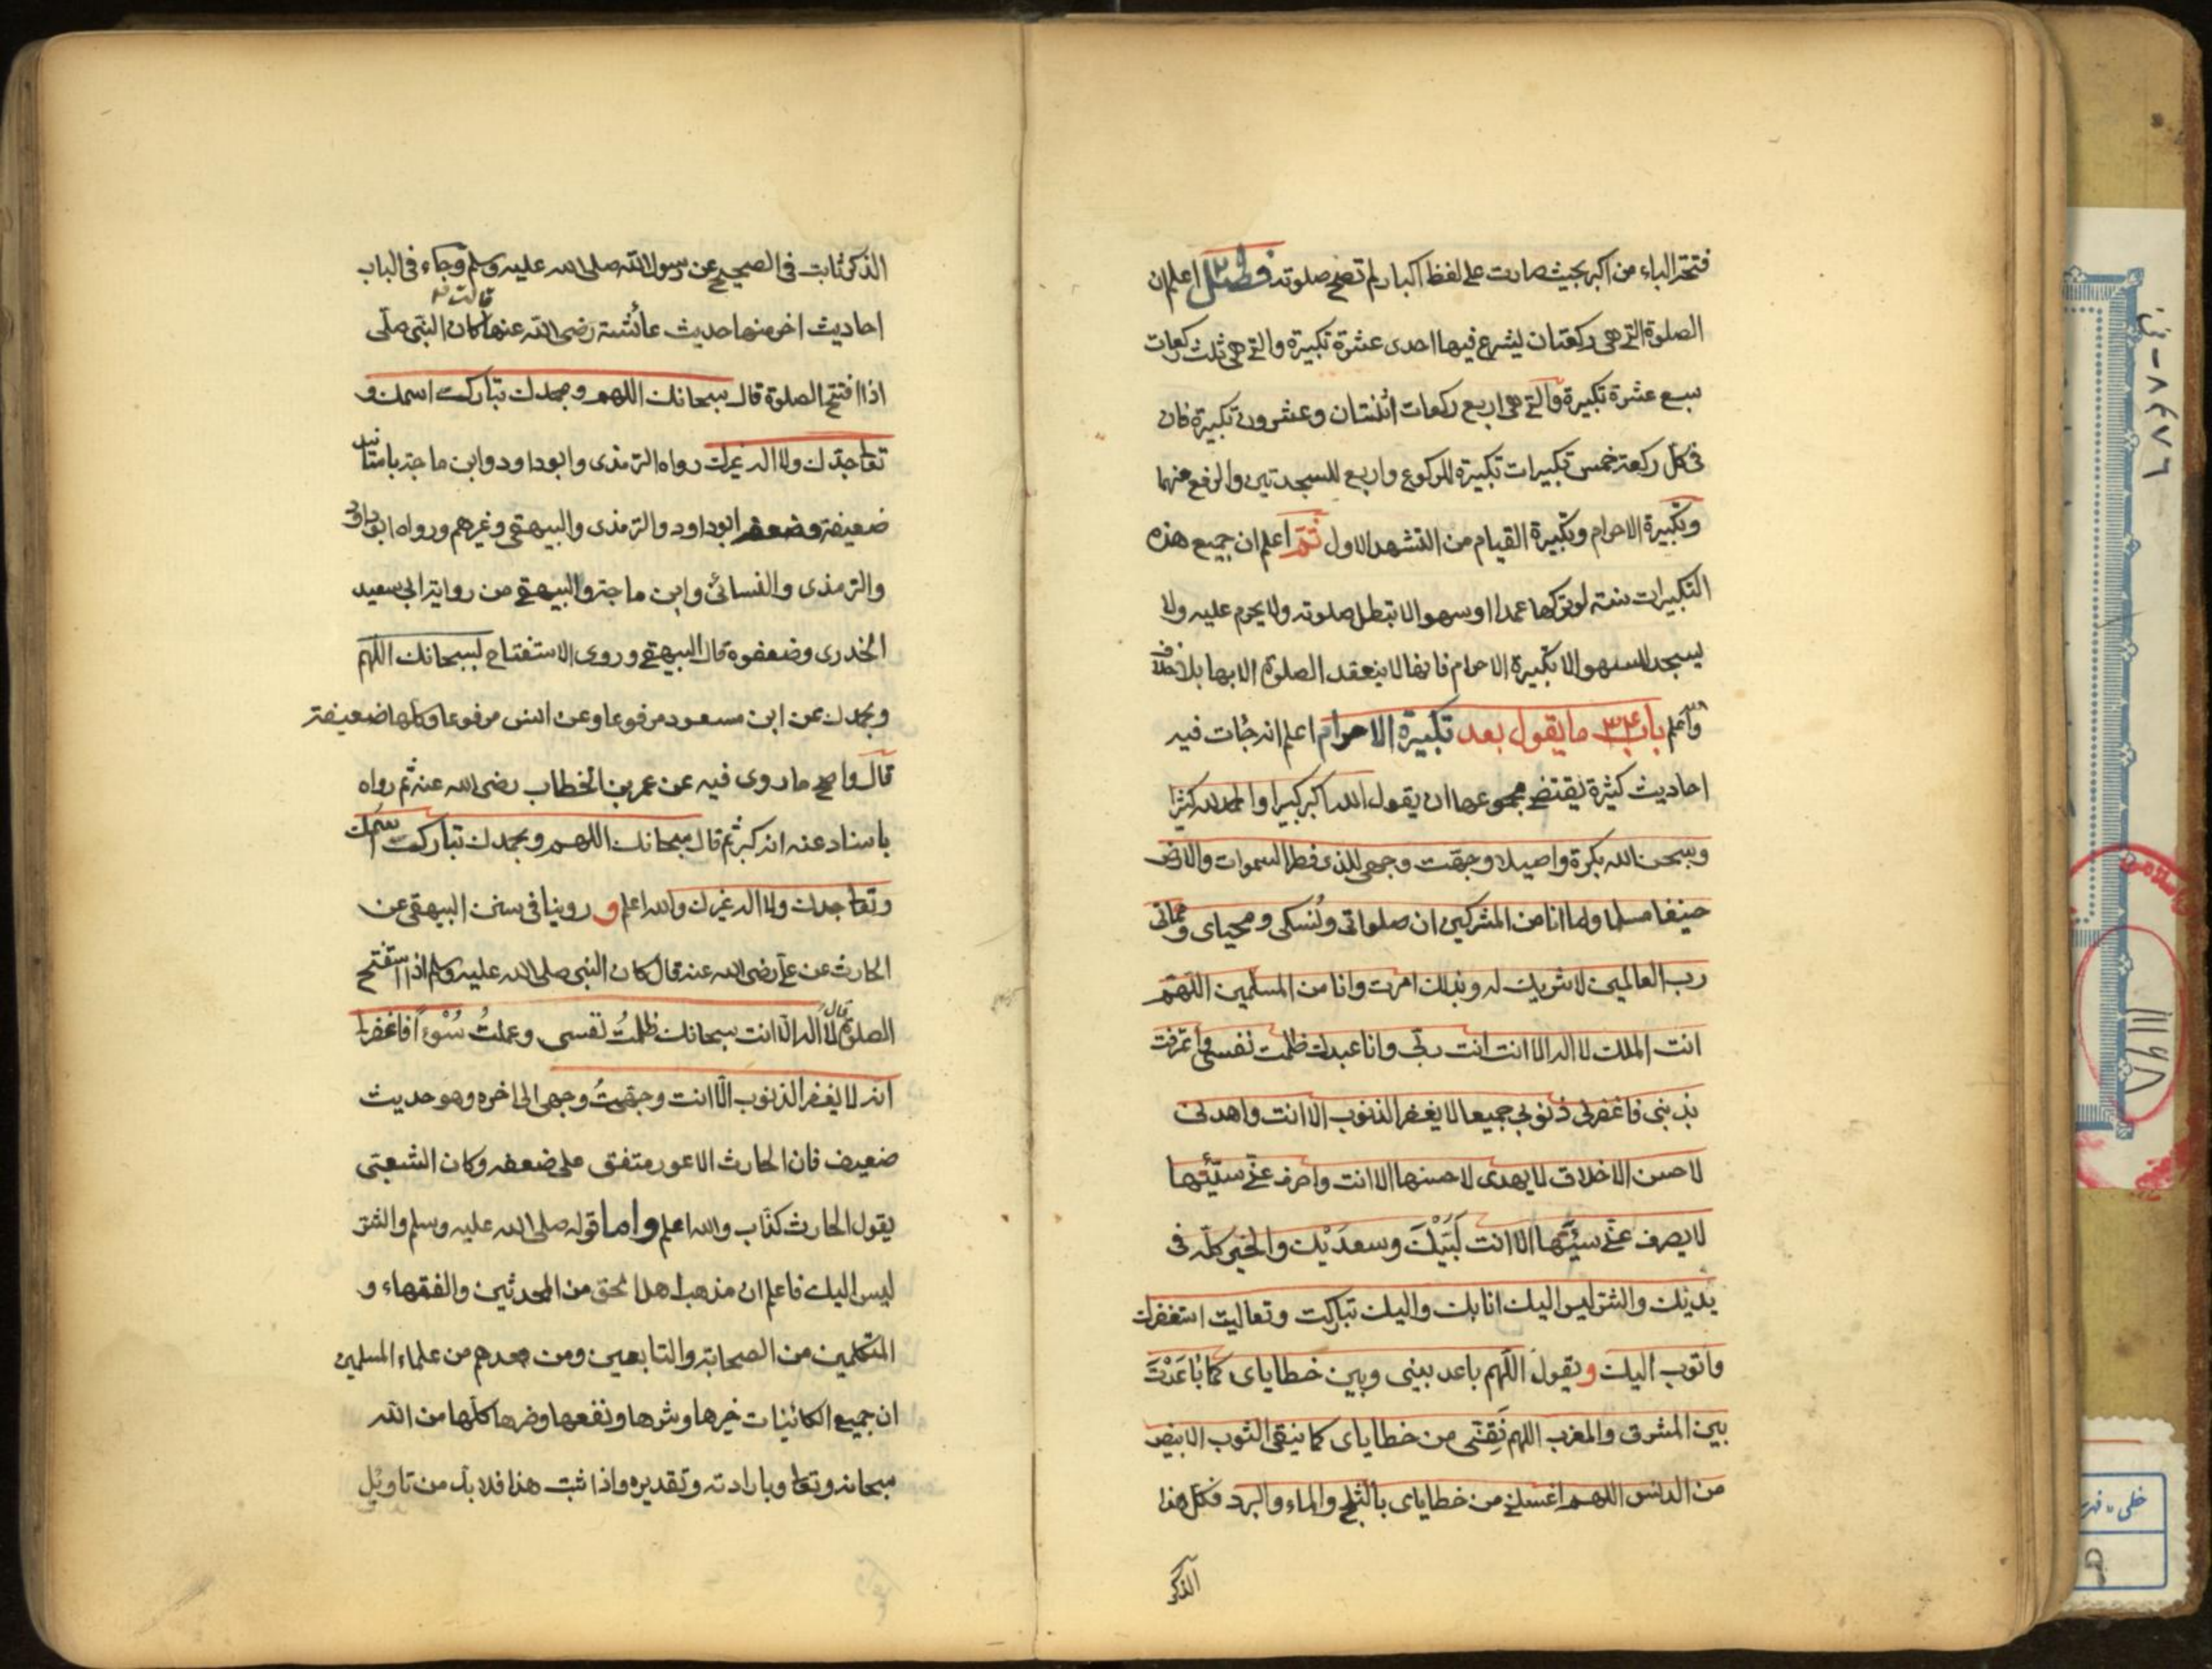 فتحة الباء من اكبر بحيث صارت على لفظ اكبار لم تصح صلوته فصل اعلم ان
الصلوة التي هي ركعتان يشرع فيها احدى عشرة تكبيرة والتي هي ثلث ركعات
سبع عشرة تكبيرة والتي هي اربع ركعات اثنتان وعشرون تكبيرة فان
في كل ركعة خمس تكبيرات تكبيرة للركوع واربع للسجدتين والرفع منهما
وتكبيرة الاحرام وتكبيرة القيام من التشهد الاول ثم اعلم ان جميع هذه
التكبيرات سنة لو تركها عمدا او سهوا لا تبطل صلوته ولا يحرم عليه ولا
يسجد للسهو الا تكبيرة الاحرام فانها لا ينعقد الصلوة الا بها بلا خلاف
والله اعلم باب ما يقول بعد تكبيرة الاحرام اعلم انه جات فيه
احاديث كثيرة يقتضي مجموعها ان يقول الله اكبر كبيرا والحمد لله كثيرا
وسبحن الله بكرة واصيلا وجهت وجهي للذي فطر السموات والارض
حنيفا مسلما وما انا من المشركين ان صلواتي ونسكي ومحياي ومماتي
رب العالمين لا شريك له وبذلك امرت وانا من المسلمين اللهم
انت الملك لا اله الا انت انت ربي وانا عبدك ظلمت نفسي واعترفت
بذنبي فاغفر لي ذنوبي جميعا لا يغفر الذنوب الا انت واهدني
لاحسن الاخلاق لا يهدى لاحسنها الا انت واصرف عني سيئها
لا يصرف عني سيئها الا انت لَبَّيْكَ وسعدَيْك والخير كله في
يديك والشر ليس اليك انا بك واليك تباركت وتعاليت استغفرك
واتوب اليك ويقول اللهم باعد بيني وبين خطاياى كما بَاعَدْتَ
بين المشرق والمغرب اللهم نَقِّنى من خطاياى كما ينقى الثوب الابيض
من الدنس اللهم اغسلني من خطاياى بالثلج والماء والبرد فكل هذا
الذكر
الذكر ثابت في الصحيح عن رسول الله صلى الله عليه وسلم وجاء في الباب
احاديث اخر منها حديث عائشة رضي الله عنها قالت كان النبي صلى
اذا افتتح الصلوة قال سبحانك اللهم وبحمدك تبارك اسمك و
تعا جدك ولا اله غيرك رواه الترمذى وابو داود وابن ماجة باسانيد
ضعيفة وضعفه ابو داود والترمذى والبيهقي وغيرهم ورواه ابو داود
والترمذى والنسائى وابن ماجة والبيهقي من رواية ابي سعيد
الخدرى وضعفوه قال البيهقي وروى الاستفتاح لسبحانك اللهم
وبحمدك عن ابن مسعود مرفوعا وعن انس مرفوعا وكلها ضعيفة
قال واصح ما روى فيه عن عمر بن الخطاب رضي الله عنه ثم رواه
باسناد عنه انه كبر ثم قال سبحانك اللهم وبحمدك تباركت اسمك
وتعا جدك ولا اله غيرك والله اعلم و روينا في سنن البيهقي عن
الحارث عن علي رضي الله عنه قال كان النبي صلى الله عليه وسلم اذا استفتح
الصلوة قال لا اله الا انت سبحانك ظلمتُ نفسي وعملتُ سُوْءاً فاغفر لي
انه لا يغفر الذنوب الا انت وجهتُ وجهى الى اخره وهو حديث
ضعيف فان الحارث الاعور متفق على ضعفه وكان الشعبى
يقول الحارث كذاب والله اعلم واما قوله صلى الله عليه وسلم والشر
ليس اليك فاعلم ان مذهب اهل الحق من المحدثين والفقهاء و
المتكلمين من الصحابة والتابعين ومن بعدهم من علماء المسلمين
ان جميع الكائنات خيرها وشرها ونفعها وضرها كلها من الله
سبحانه وتعا وبارادته وتقديره واذا ثبت هذا فلا بد من تاويل